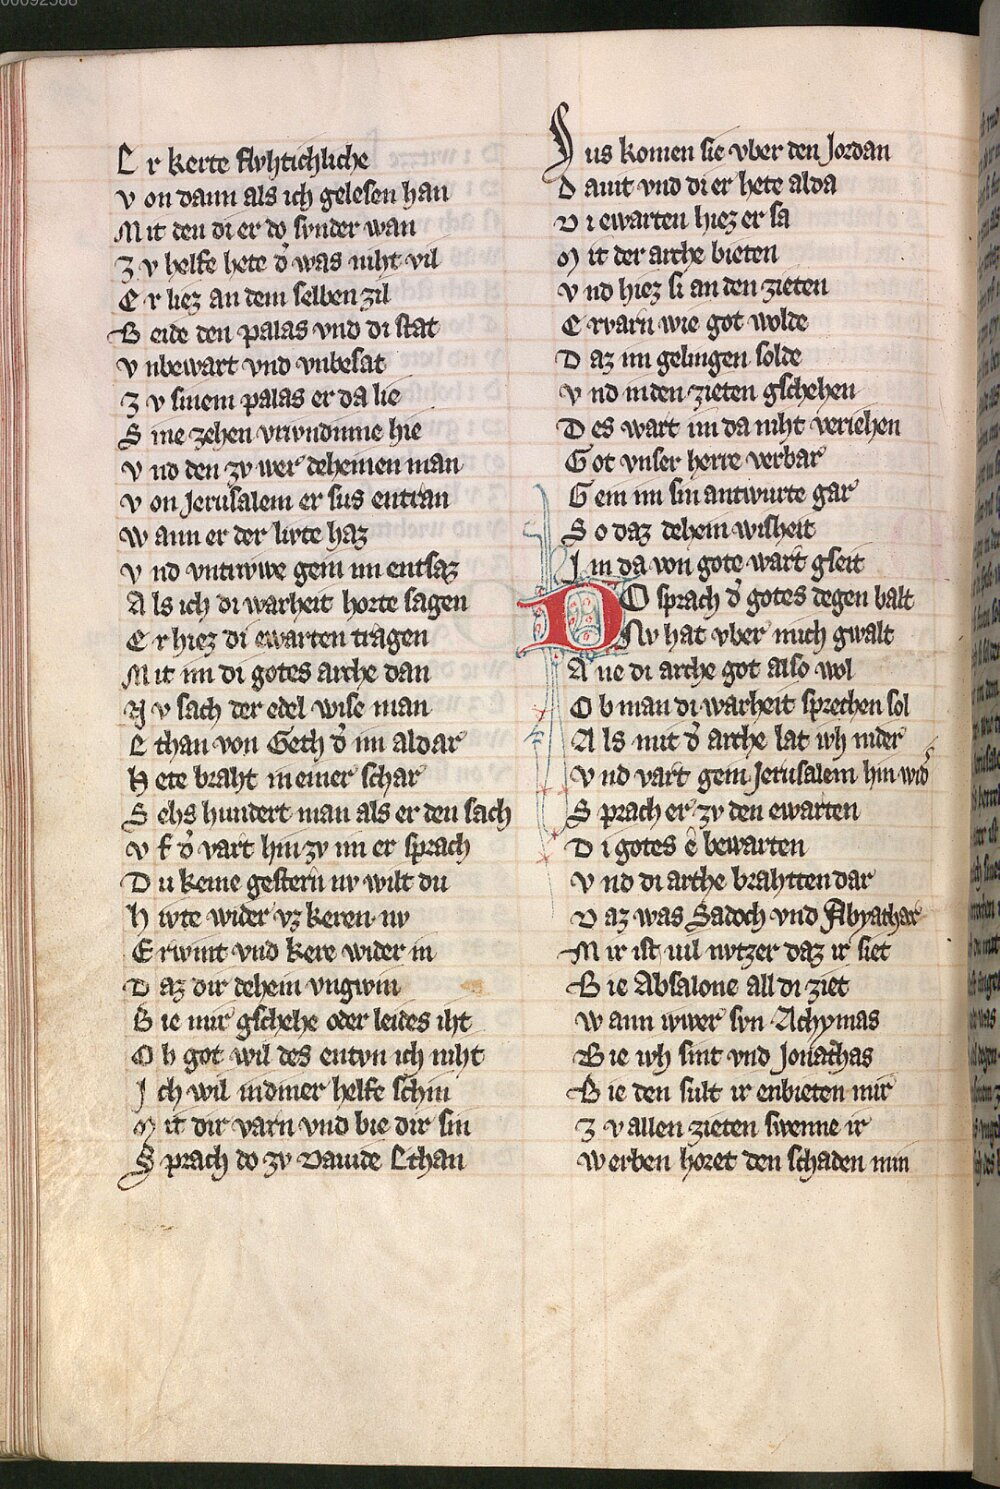 00092588
Er kerte flvhtichliche
Von dann als ich gelesen han
Mit den di er do svnder wan
Zv helfe hete d͛ was niht vil
Er liez an dem selben zil
Beide den palas vnd di stat
Vnbewart vnd vnbesat
Zv sinem palas er da lie
Sine zehen vrivndinne hie
Vnd den zv wer deheinen man
Von Jerusalem er sus entran
Wann er der livte haz
Vnd vntriwe gein im entsaz
Als ich di warheit horte sagen
Er hiez di ewarten tragen
Mit im di gotes arche dan
Nv sach der edel wise man
Ethan von Geth d͛ im aldar
Hete braht in einer schar
Sehs hundert man als er den sach
Vf d͛ vart hin zv im er sprach
Du keme gestern nv wilt du
Hivte wider vz keren nv
Erwint vnd kere wider in
Daz dir dehein vngwin
Bie mir gschehe oder leides iht
Ob got wil des entvn ich niht
Ich wil in diner helfe schin
Mit dir varn vnd bie dir sin
Sprach do zv Dauide Ethan
Sus komen sie vber den Jordan
Dauit vnd di er hete alda
Di ewarten hiez er sa
Mit der arche bieten
Vnd hiez si an den zieten
Ervarn wie got wolde
Daz im gelingen solde
Vnd in den zieten gschehen
Des wart im da niht veriehen
Got vnser herre verbar
Gein im sin antwurte gar
So daz dehein wisheit
Im da von gote wart gseit
DO sprach d͛ gotes degen balt
Nv hat vber mich gwalt
Ane di arche got also wol
Ob man di warheit sprechen sol
Als mit d͛ arche lat ivh nider
Vnd vart gein Jerusalem hin wid͛
Sprach er zv den ewarten
Di gotes e bewarten
Vnd di arche brahtten dar
Daz was Sadoch vnd Abyathar
Mir ist uil nvtzer daz ir siet
Bie Absalone all di ziet
Wann iwer svn Achymas
Bie ivh sint vnd Jonathas
Bie den sult ir enbieten mir
Zv allen zieten swenne ir
Werben horet den schaden min